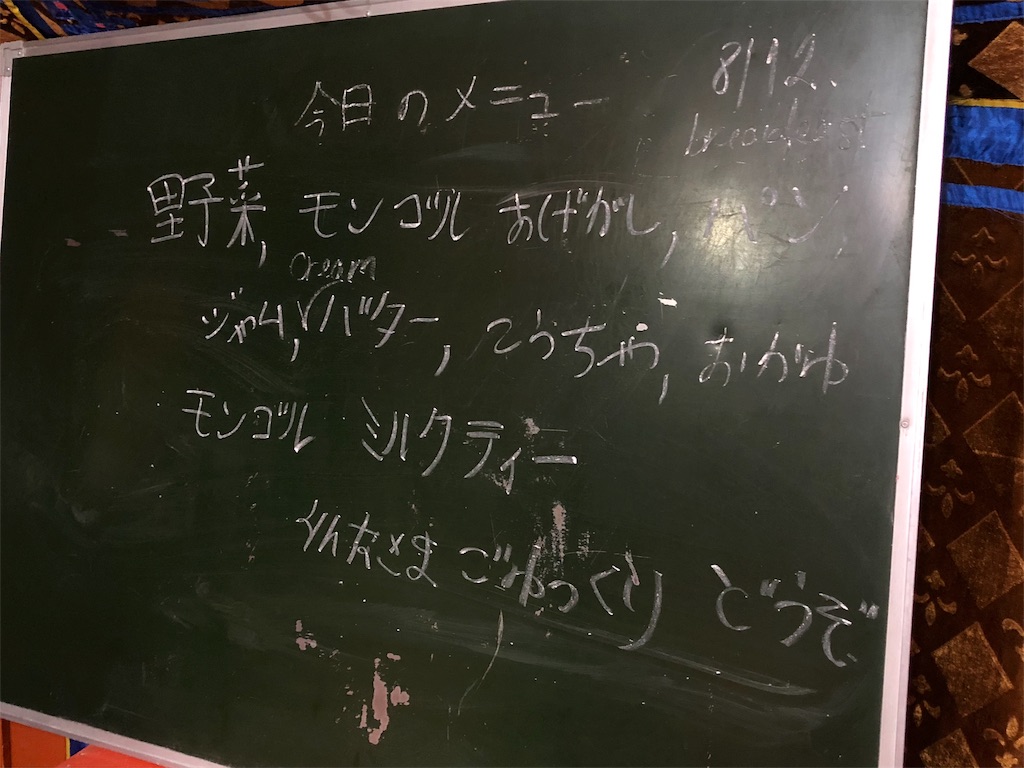 今日のメニュー 8/12.
breakfast
野菜, モンゴル あげがし, パン,
cream
ジャム, バター, こうちゃ, おかゆ
モンゴル ミルクティー
みなさま ごゆっくり どうぞ